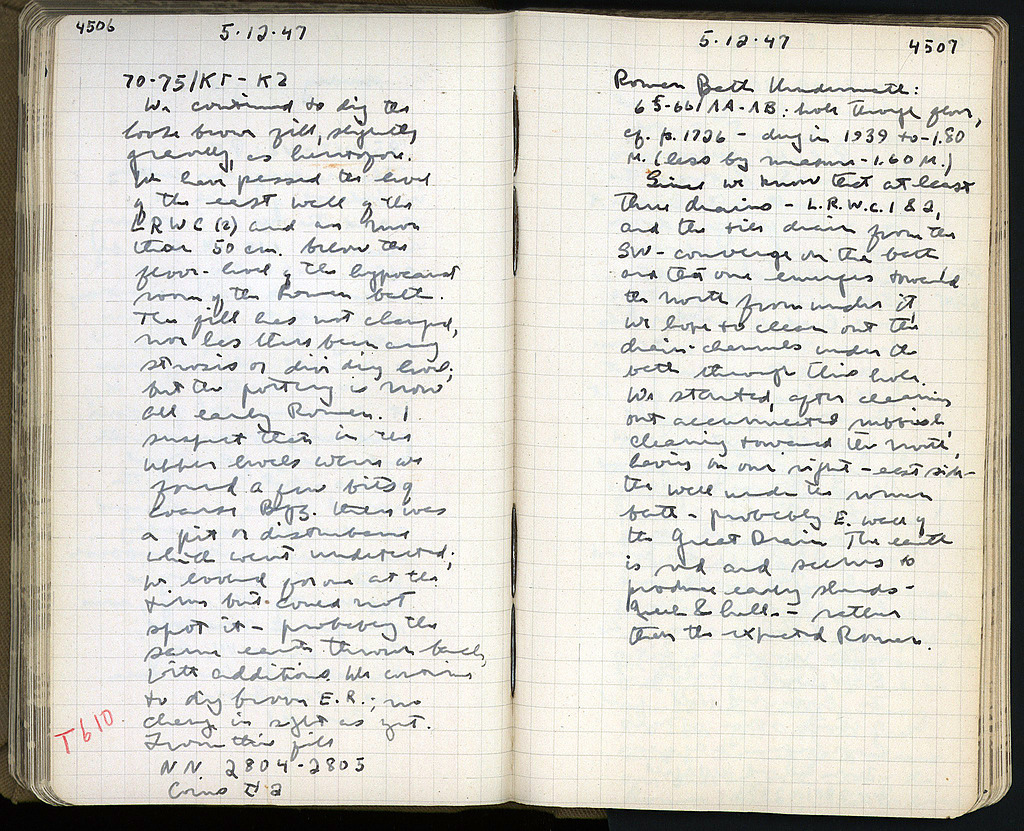 4506
5·12·47
70-75/ΚΓ - Κ2
We continued to dig the
loose brown fill, slightly
gravelly, as heretofore.
We have passed the level
of the east wall of the
LRWC (2) and are more
than 50 cm. below the
floor-level of the hypocaust
room of the Roman bath.
The fill has not changed,
nor has there been any
strosis or dividing level;
but the pottery is now
all early Roman. I
suspect that in the
upper levels where we
found a few bits of
coarse Byz. there was
a pit or disturbance
which went undetected;
we looked for one at the
time but could not
spot it - probably the
same earth thrown back,
with additions. We continue
to dig brown E.R.; no
change in sight as yet.
From this fill
NN. 2804-2805
Coins 2
T610.
5·12·47
4507
Roman Bath Underneath:
65-66/ΛΑ-ΛΒ: hole through floor,
cf. p. 1726 - dug in 1939 to -1.80
M. (less by measure -1.60 M.)
Since we know that at least
three drains - L.R.W.C. 1 & 2,
and the tiles drain from the
SW - converge on the bath
and that one emerges toward
the north from under it,
we hope to clean out the
drain-channels under the
bath through this hole.
We started, after cleaning
out accumulated rubbish,
clearing toward the north,
having on our right - east side -
the wall under the roman
bath - probably E. wall of
the Great Drain. The earth
is red and seems to
produce early sherds -
Greek & hell. - rather
than the expected Roman.